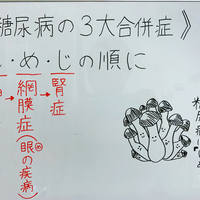 糖尿病の３大合併症》
・め・じの順に
→網膜症(眼の疾病)
→腎症
糖尿病